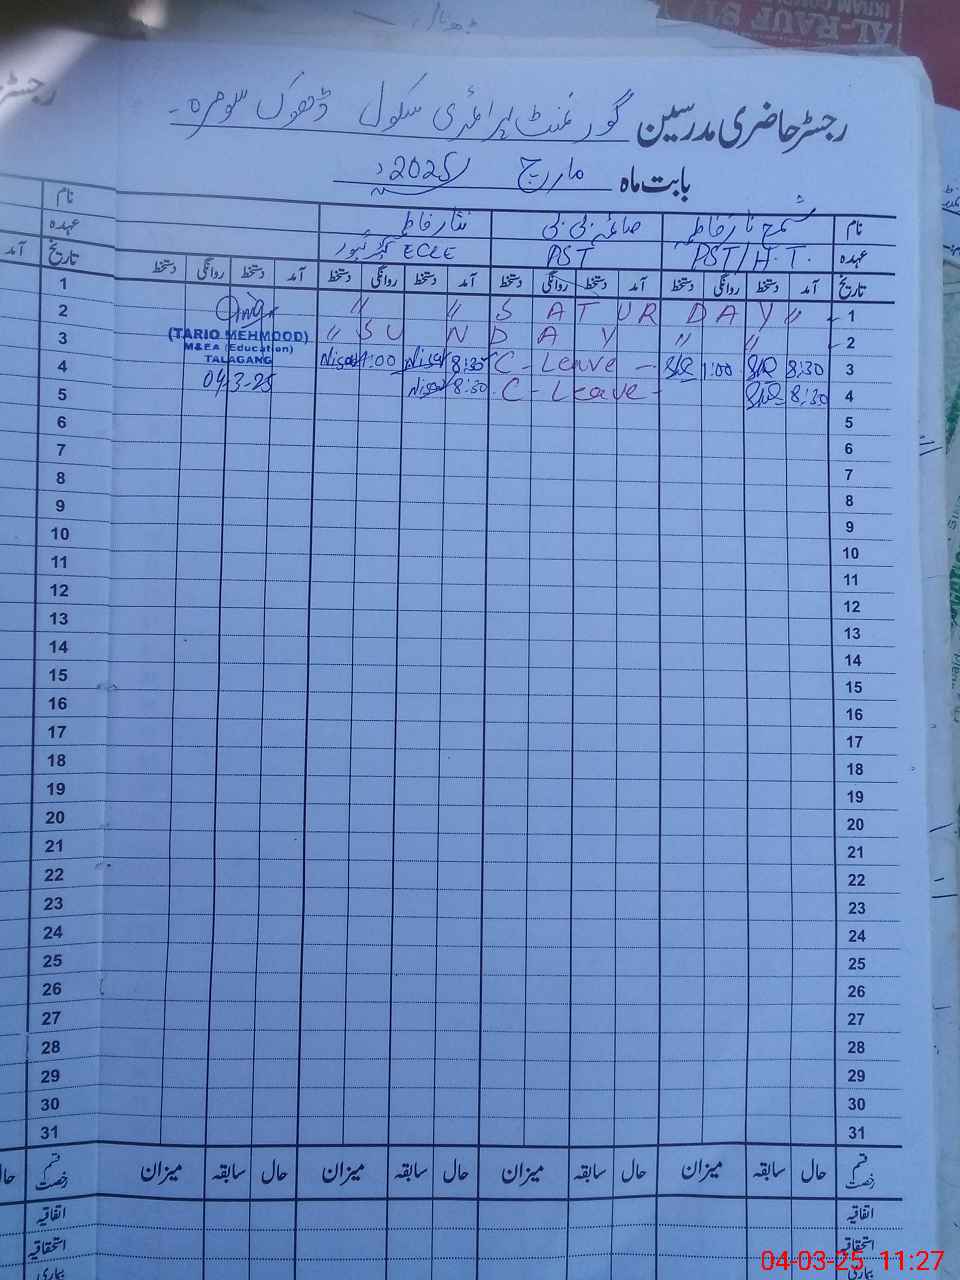 AL-RAUF ST
رجسٹر حاضری مدرسین گورنمنٹ پرائمری سکول ڈھوک سومرہ
بابت ماہ مارچ 2025ء
نام شمع ناز فاطمہ صائمہ بی بی نثار فاطمہ نام
عہدہ PST/H.T. PST ECCE کیئر گیور عہدہ
تاریخ آمد دستخط روانگی دستخط آمد دستخط روانگی دستخط آمد دستخط روانگی دستخط آمد دستخط روانگی دستخط تاریخ آمد
1 〃 S A T U R D A Y 〃 〃 〃 1
2 〃 〃 S U N D A Y 〃 2
(TARIQ MEHMOOD)
M&EA (Education)
TALAGANG
04-3-25
3 8:30 1:00 C-Leave - 8:35 Nisar 1:00 Nisar 3
4 8:30 C-Leave - 8:30 Nisar 4
5 5
6 6
7 7
8 8
9 9
10 10
11 11
12 12
13 13
14 14
15 15
16 16
17 17
18 18
19 19
20 20
21 21
22 22
23 23
24 24
25 25
26 26
27 27
28 28
29 29
30 30
31 31
قسم رخصت حال سابقہ میزان حال سابقہ میزان حال سابقہ میزان حال سابقہ میزان قسم رخصت حال
اتفاقیہ اتفاقیہ
استحقاقیہ استحقاقیہ
بیماری بیماری
04-03-25 11:27